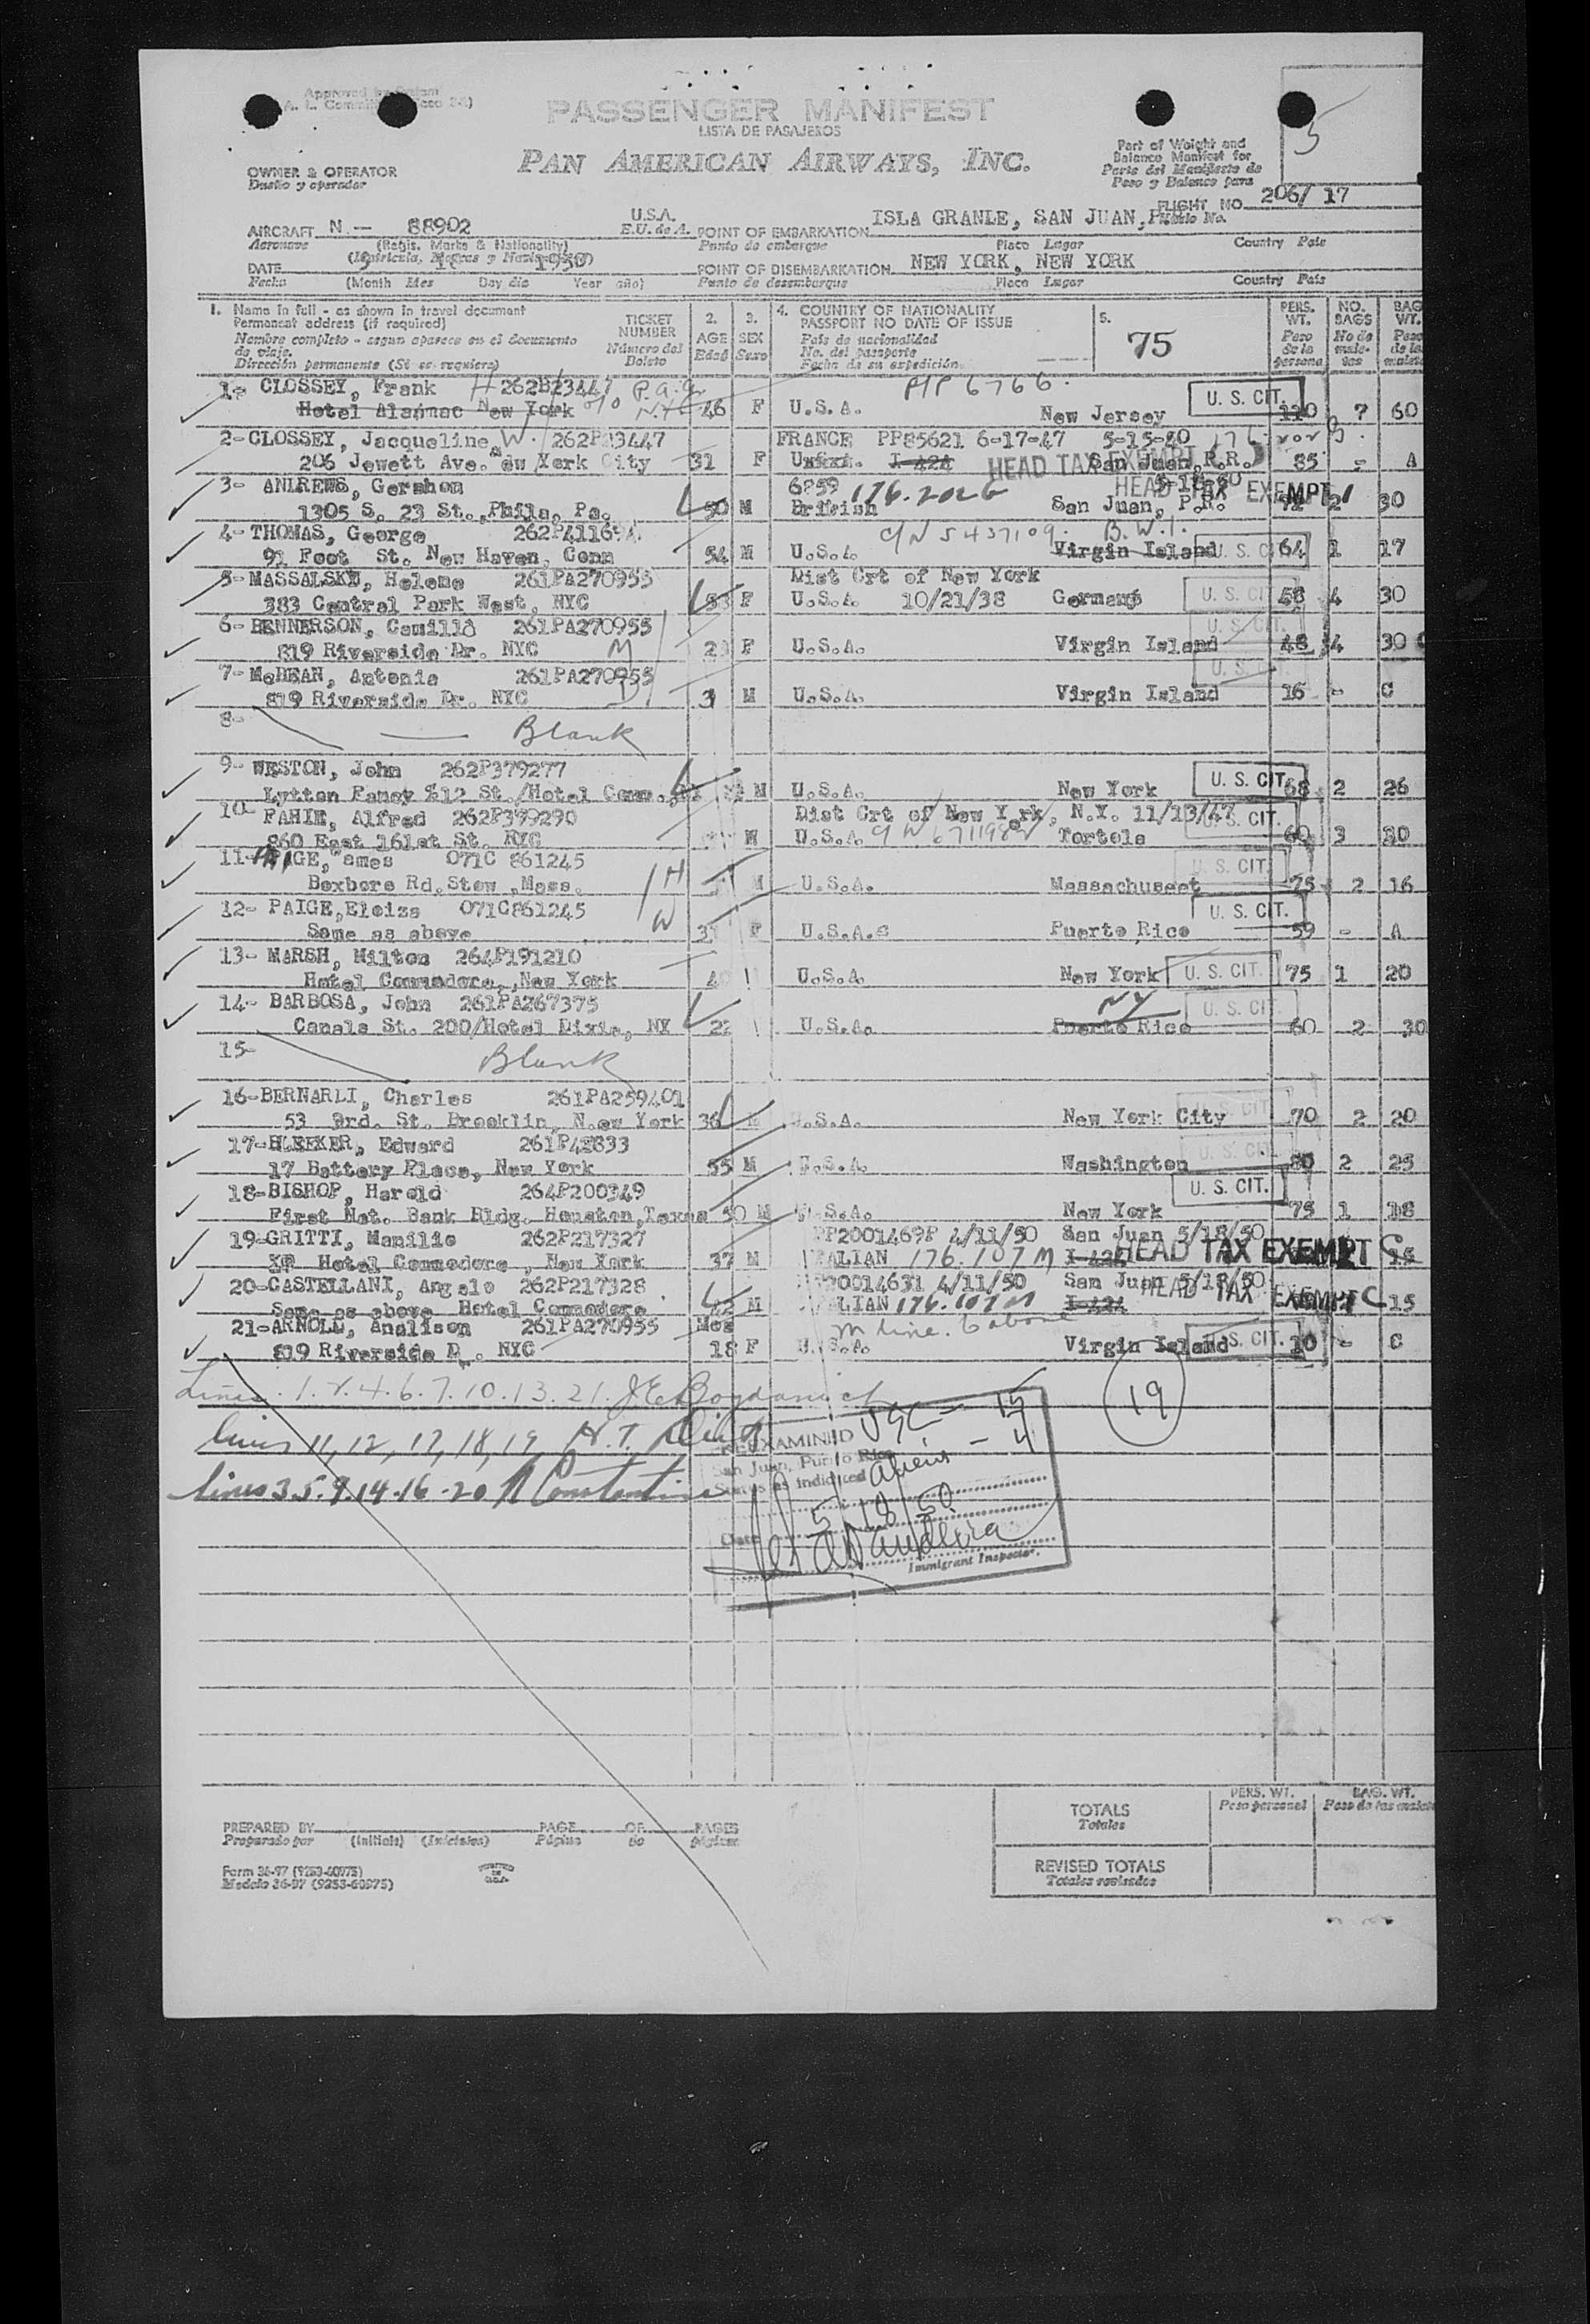 PASSENGER MANIFEST
LISTA DE PASAJEROS
PAN AMERICAN AIRWAYS, INC.
5
Part of Weight and
Balance Manifest for
Parte del Manifiesto de
Peso y Balance para
OWNER & OPERATOR
Dueño y operador
FLIGHT NO. 206/ 17
AIRCRAFT N - 88902 U.S.A. POINT OF EMBARKATION ISLA GRANDE, SAN JUAN,
Aeronave (Regis. Marks & Nationality) E.U. de A. Punto de embarque Place Lugar Country Pais
DATE 1950 POINT OF DISEMBARKATION NEW YORK, NEW YORK
Fecha (Month Mes Day dia Year año) Punto de desembarque Place Lugar Country Pais
1. Name in full - as shown in travel document
Permanent address (if required)
Nombre completo - segun aparece en el documento
de viaje.
Dirección permanente (Si se requiere)
TICKET
NUMBER
Número del
Boleto
2.
AGE
Edad
3.
SEX
Sexo
4. COUNTRY OF NATIONALITY
PASSPORT NO DATE OF ISSUE
País de nacionalidad
No. del pasaporte
Fecha de su expedición
5.
75
PERS.
WT.
Peso
de la
persona
NO.
BAGS
No de
male-
tas
BAG
WT.
Peso
de la
maleta
1- CLOSSEY, Frank H 262P23447 PP 6766.
Hotel Alamac New York 46 F U.S.A. New Jersey U. S. CIT. 110 ? 60
2-CLOSSEY, Jacqueline W. 262P23447 FRANCE PP85621 6-17-47 5-15-50
206 Jewett Ave. New York City 31 F I-424 HEAD TAX EXEMPT San Juan, P.R. 85 - A
3- ANDREWS, Gershom 6859 176.202G HEAD TAX EXEMPT
1305 S. 23 St., Phila, Pa. 50 M British San Juan, P.R. 2 30
4- THOMAS, George C/N 5437109. B.W.I.
91 Foot St. New Haven, Conn 54 M U.S.A. Virgin Island U. S. CIT. 64 1 17
5- MASSALSKE, Helene 261PA270953 Dist Crt of New York
383 Central Park West, NYC F U.S.A. 10/21/38 Germany U. S. CIT. 58 4 30
6- BENNERSON, Camilla 261PA270955 U. S. CIT.
819 Riverside Dr. NYC M F U.S.A. Virgin Island 48 4 30
7- McBEAN, Antonia 261PA270955 U. S. CIT.
819 Riverside Dr. NYC 3 M U.S.A. Virgin Island 16 - C
8- Blank
9- WESTON, John 262P379277
Lytton Fancy %12 St./Hotel Comm. M U.S.A. New York U. S. CIT. 68 2 26
10- FAHIE, Alfred 262P399290 Dist Crt of New York, N.Y. 11/13/47
860 East 161st St. NYC M U.S.A. Tortola U. S. CIT. 60 3 30
11- PAIGE, James 071C 861245
Boxboro Rd. Stow, Mass. H M U.S.A. Massachuset U. S. CIT. 75 2 16
12- PAIGE, Eloiza 071C861245
Same as above W F U.S.A. Puerto Rico U. S. CIT. 59 - A
13- MARSH, Milton 264P191210
Hotel Commodore, New York U.S.A. New York U. S. CIT. 75 1 20
14- BARBOSA, John 261PA267375 NY
Canals St. 200/Hotel Dixie, NY 22 U.S.A. Puerto Rico U. S. CIT. 60 2 30
15- Blank
16-BERNARDI, Charles 261PA259401
53 3rd. St. Brooklin, N.ew York 36 U.S.A. New York City U. S. CIT. 70 2 20
17-BLEEKER, Edward 261P42833
17 Battery Place, New York 55 M U.S.A. Washington U. S. CIT. 80 2 25
18-BISHOP, Harold 264P200349
First Nat. Bank Bldg. Houston, Texas 50 M U.S.A. New York U. S. CIT. 75 1 18
19-GRITTI, Manilio 262P217327 PP2001469P 4/11/50 San Juan 5/18/50
Hotel Commodore, New York 37 M ITALIAN 176.107M I-424 HEAD TAX EXEMPT C 15
20-CASTELLANI, Angelo 262P217328 PP20014631 4/11/50 San Juan 5/18/50
Same as above Hotel Commodore 42 M ITALIAN 176.107M I-424 HEAD TAX EXEMPT C 15
21-ARNOLD, Analison 261PA270955 Mos m line. 6 above
819 Riverside D . NYC 18 F U.S.A. Virgin Island U. S. CIT. 10 - C
Lines . 1. 2. 4. 6. 7. 10. 13. 21. J.E. Bogdanich
19
lines 11, 12, 17, 18, 19, H. T.
lines 3. 5. 9. 14. 16 - 20 Constantine
PREEXAMINED USC - 15
San Juan, Puerto Rico
Status as indicated Aliens - 4
Date 5/18/50
Immigrant Inspector.
TOTALS
Totales
PERS. WT.
Peso personal
BAG. WT.
Peso de las maletas
REVISED TOTALS
Totales revisados
PREPARED BY PAGE OF PAGES
Preparado por (Initials) (Iniciales) Página de páginas
Form 36-97 (9253-60975)
Modelo 36-97 (9253-60975)